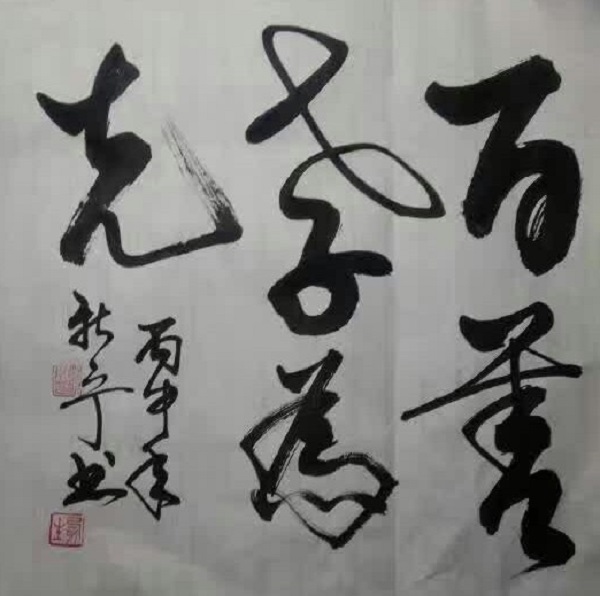 百善
孝為
先
丙申年
新 书